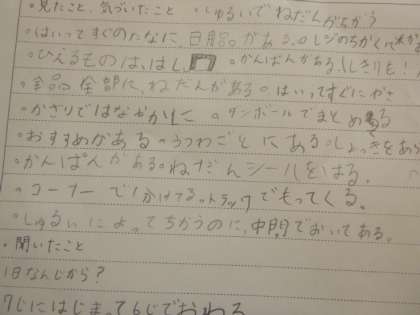 ・見たこと、気づいたこと 。しゅるいでねだんがちがう
。はいってすぐのたなに、日用品。がある。。レジのちかくに
。ひえるものは、はし、 。かんばんがある、しきりも!
。全品、全部に、ねだんがある。。はいってすぐに
。かざりではなやかに 。ダンボールでまとめる
。おすすめがある。うつわごとにある。しょっきをあら
。かんばんがある。ねだんシールをはる。
。コーナーで分けてる。トラックでもってくる。
。しゅるいによってちがうのに、中門でおいてある。
・聞いたこと
1日なんじから?
7じにはじまって6じでおわる